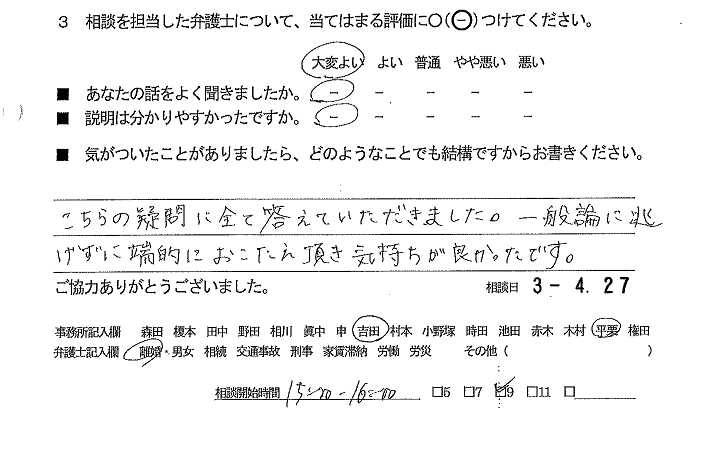 3 相談を担当した弁護士について、当てはまる評価に○(⊖)つけてください。
大変よい よい 普通 やや悪い 悪い
■ あなたの話をよく聞きましたか。 － － － － －
■ 説明は分かりやすかったですか。 － － － － －
■ 気がついたことがありましたら、どのようなことでも結構ですからお書きください。
こちらの疑問に全て答えていただきました。一般論に逃
げずに端的におこたえ頂き気持ちが良かったです。
ご協力ありがとうございました。 相談日 3－4.27
事務所記入欄 森田 榎本 田中 野田 相川 眞中 申 吉田 村本 小野塚 時田 池田 赤木 木村 平栗 権田
弁護士記入欄 離婚・男女 相続 交通事故 刑事 家賃滞納 労働 労災 その他( )
相談開始時間 15:00-16:00 □5 □7 ☑9 □11 □